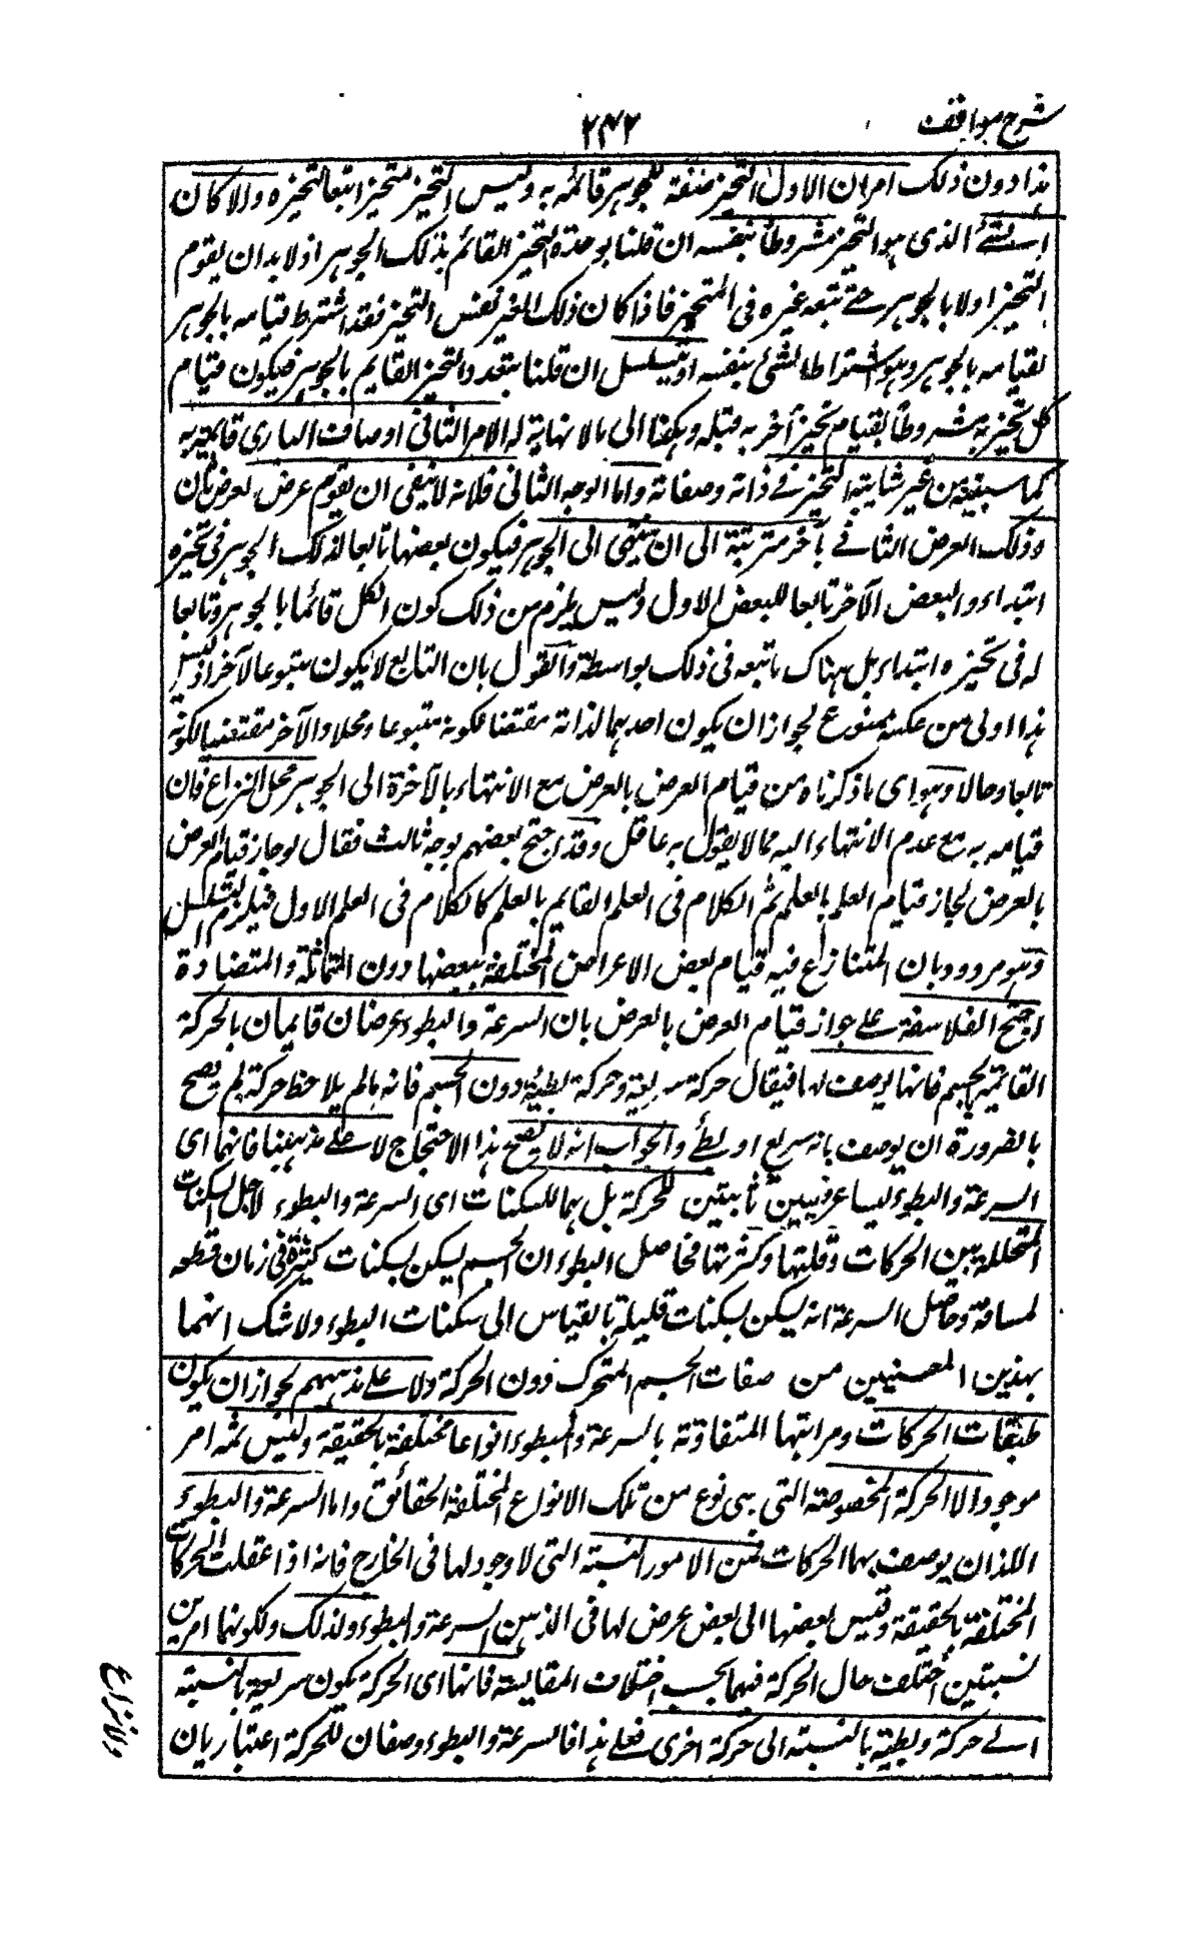 شرح مواقف
٢٤٢
هذا دون ذلك امران الاول التحيز صفة للجوهر قائمة به وليس التحيز متحيزا تبعا لتحيزه والا كان
الشئ الذى هو التحيز مشروطا بنفسه ان قلنا بوحدة التحيز القائم بذلك الجوهر اذ لا بد ان يقوم
التحيز اولا بالجوهر حتے يتبعه غيره فى التحيز فاذا كان ذلك الغير نفس التحيز فقد اشترط قيامه بالجوهر
لقيامه بالجوهر وهو اشتراط الشئ بنفسه او تسلسل ان قلنا بتعدد التحيز القايم بالجوهر فيكون قيام
كل تحيز به مشروطا بقيام تحيز آخر به قبله وهكذا الى ما لا نهاية له الامر الثانى اوصاف البارى قائمة به
كما سيتبين من غير شايبة التحيز فے ذاته وصفاته واما الوجه الثانى فلانه لا ينفى ان يقوم عرض بعرض ثان
وذلك العرض الثانے بآخر مترتبة الى ان ينتهى الى الجوهر فيكون بعضها تابعا لذلك الجوهر فى تحيزه
ابتداء والبعض الآخر تابعا للبعض الاول وليس يلزم من ذلك كون الكل قائما بالجوهر وتابعا
له فى تحيزه ابتداء بل هناك ما تبعه فى ذلك بواسطة والقول بان التابع لا يكون متبوعا لآخر اذ ليس
هذا اولى من عكسه ممنوع لجواز ان يكون احدهما لذاته مقتضيا لكونه متبوعا ومحلا والآخر مقتضيا لكونه
تابعا وحالا وهو اى ما ذكرناه من قيام العرض بالعرض مع الانتهاء بالآخرة الى الجوهر محل النزاع فان
قيامه به مع عدم الانتهاء اليه مما لا يقول به عاقل وقد احتج بعضهم بوجه ثالث فقال لو جاز قيام العرض
بالعرض لجاز قيام العلم بالعلم ثم الكلام فى العلم القايم بالعلم كالكلام فى العلم الاول فيلزم التسلسل
وهو مردود بان المتنازع فيه قيام بعض الاعراض المختلفة ببعضها دون المتماثلة والمتضادة
احتج الفلاسفة علے جواز قيام العرض بالعرض بان السرعة والبطوء عرضان قايمان بالحركة
القائمة بالجسم فانها يوصف بها فيقال حركة سريعة وحركة بطيئة دون الجسم فانه ما لم يلاحظ حركة لم يصح
بالضرورة ان يوصف بانه سريع او بطئ والجواب انه لا يصح هذا الاحتجاج لا علے مذهبنا فانهما اى
السرعة والبطوء ليسا عرضيين ثابتين للحركة بل هما للسكنات اى السرعة والبطوء لاجل السكنات
المتخللة بين الحركات وقلتها وكثرتها فحاصل البطوء ان الجسم يسكن بسكنات كثيرة فى زمان قطعه
لمسافة وحاصل السرعة انه يسكن بسكنات قليلة بالقياس الى سكنات البطوء ولا شك انهما
بهذين المعنيين من صفات الجسم المتحرك دون الحركة ولا علے مذهبهم لجواز ان يكون
طبقات الحركات ومراتبها المتفاوتة بالسرعة والبطوء انواعا مختلفة بالحقيقة وليس ثمه امر
موجود الا الحركة المخصوصة التى هى نوع من تلك الانواع المختلفة الحقائق واما السرعة والبطوء
اللذان يوصف بهما الحركات فمن الامور النسبية التى لا وجود لها فى الخارج فانه اذا عقلت الحركات
المختلفة بالحقيقة وقيس بعضها الى بعض عرض لها فى الذهن السرعة والبطوء ولذلك ولكونهما امرين
نسبتين اختلف حال الحركة فيهما بحسب اختلاف المقايسة فانها اى الحركة يكون سريعة بالنسبة
الے حركة وبطيئة بالنسبة الى حركة اخرى فعلے هذا فالسرعة والبطوء وصفان للحركة اعتباريان
ولا نزاع